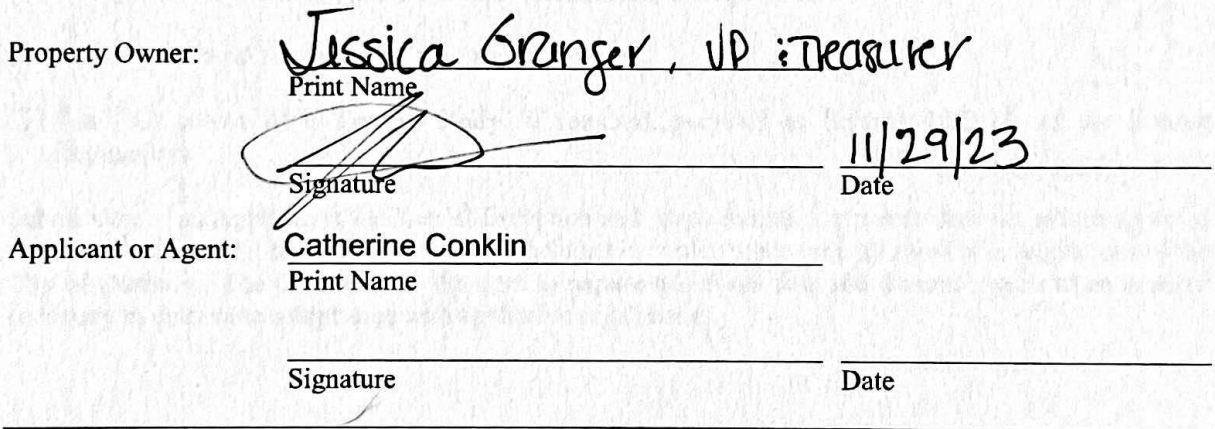 Property Owner: Jessica Granger, VP & Treasurer
Print Name
11/29/23
Signature Date
Applicant or Agent: Catherine Conklin
Print Name
Signature Date